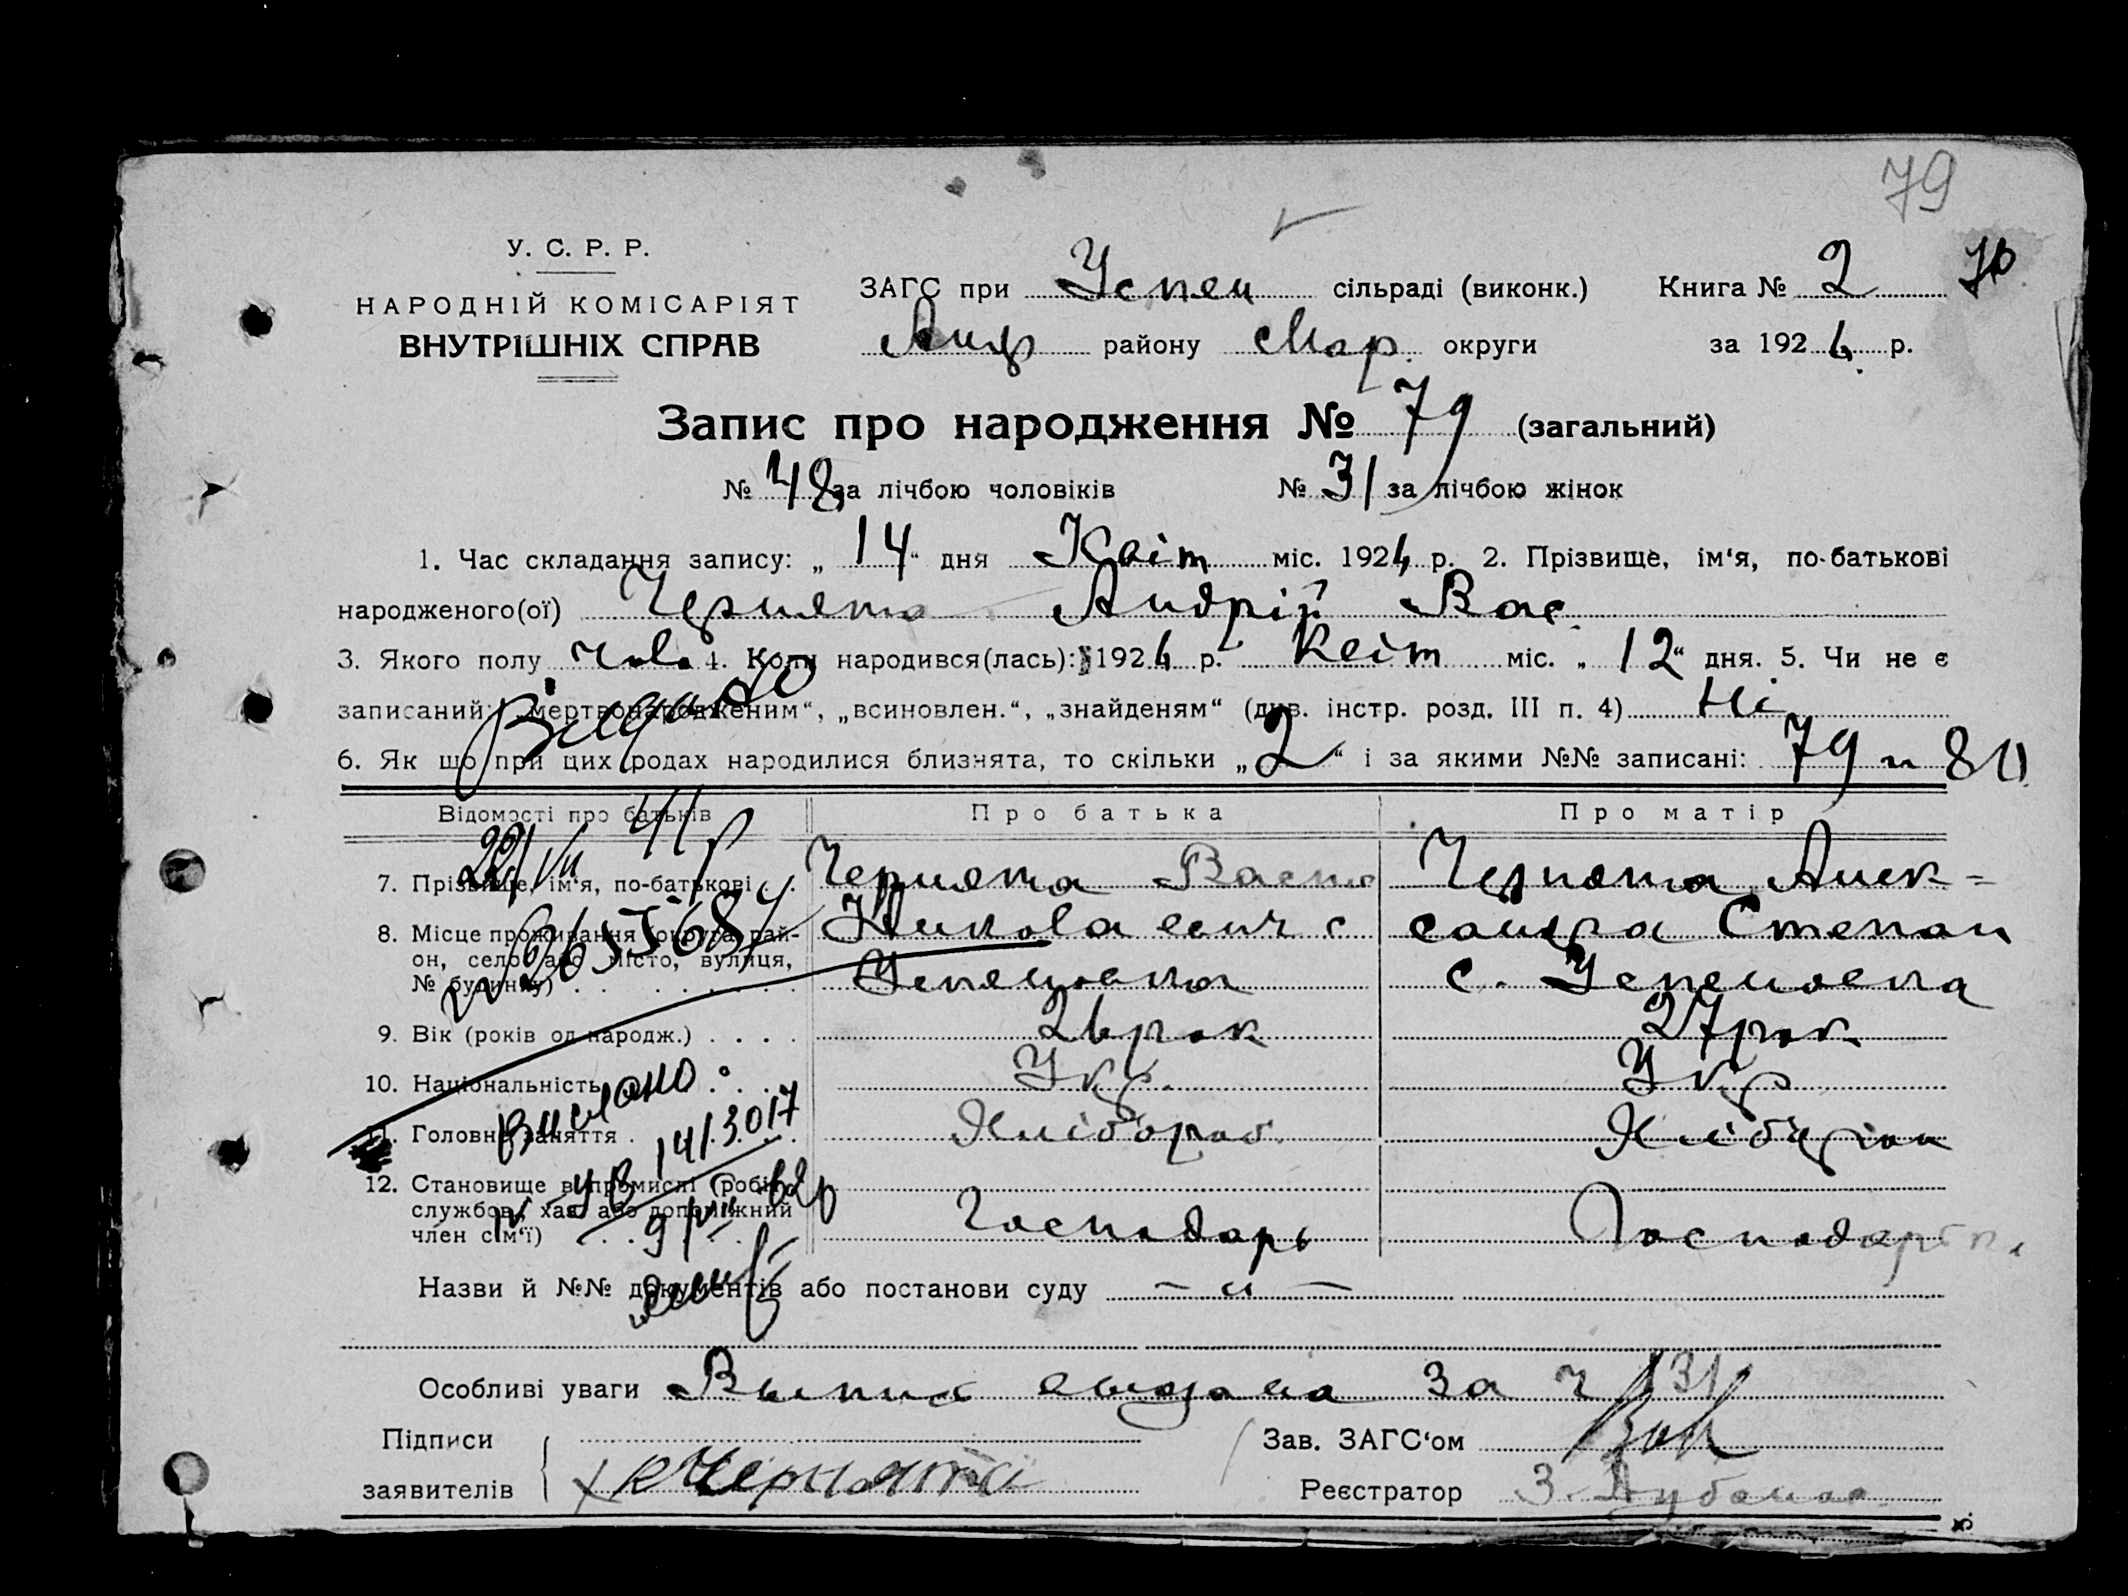 79
У. С. Р. Р.
НАРОДНІЙ КОМІСАРІЯТ
ВНУТРІШНІХ СПРАВ
ЗАГС при Успен сільраді (виконк.) Книга № 2
району Мар. округи за 192 р.
Запис про народження № 79 (загальний)
№ 48 за лічбою чоловіків № 31 за лічбою жінок
1. Час складання запису: „ 14 “ дня Квіт міс. 192 р. 2. Прізвище, ім‘я, по-батькові
народженого(ої) Чернята Андрій Вас.
3. Якого полу Чол. 4. Коли народився(лась): 192 р. Квіт міс. „ 12 “ дня. 5. Чи не є
записаний: „мертвонародженим“, „всиновлен.“, „знайденям“ (див. інстр. розд. III п. 4) Ні
6. Як що при цих родах народилися близнята, то скільки „ 2 “ і за якими №№ записані: 79 и 80
Відомості про батьків Про батька Про матір
7. Прізвище, ім‘я, по-батькові . . Чернята Чернята Алек-
8. Місце проживання (округа, рай- Николаевич с сандра Степан
он, село або місто, вулиця,
№ будинку) . . Успеновка с. Успеновка
9. Вік (років од народж.) . . . . 26 рок 27 рок
10. Національність . . Укр. Укр
11. Головне заняття . . Хлібороб.
12. Становище в промислі (робітн.
службов., хаз. або допоміжний
член сім‘ї) . . Господарь Господарка
Видано
41 р
Выслано
14/3017
Назви й №№ документів або постанови суду — „ —
Особливі уваги Выпись выдана за ч 131
Підписи Зав. ЗАГС‘ом
заявителів Чернята Реєстратор З.